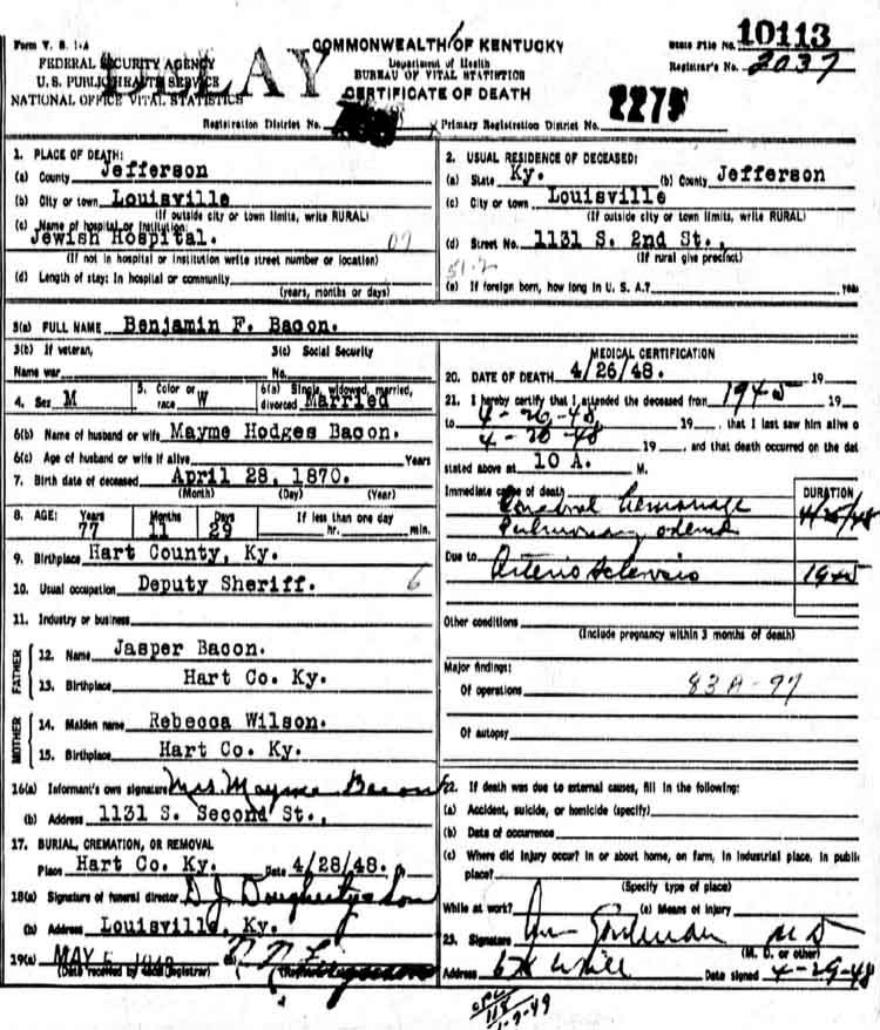 Form V. S. 1-A
COMMONWEALTH OF KENTUCKY
State File No. 10113
FEDERAL SECURITY AGENCY
Department of Health
Registrar's No. 2037
U. S. PUBLIC HEALTH SERVICE
BUREAU OF VITAL STATISTICS
NATIONAL OFFICE VITAL STATISTICS
DELAY
CERTIFICATE OF DEATH
Registration District No. Primary Registration District No. 2275
1. PLACE OF DEATH:
(a) County Jefferson
(b) City or town Louisville
(If outside city or town limits, write RURAL)
(c) Name of hospital or institution:
Jewish Hospital. 07
(If not in hospital or institution write street number or location)
(d) Length of stay: In hospital or community
(years, months or days)
2. USUAL RESIDENCE OF DECEASED:
(a) State Ky. (b) County Jefferson
(c) City or town Louisville
(If outside city or town limits, write RURAL)
(d) Street No. 1131 S. 2nd St.,
(If rural give precinct)
51-2
(e) If foreign born, how long in U. S. A.? years
3(a) FULL NAME Benjamin F. Bacon.
3(b) If veteran, 3(c) Social Security
Name war No.
4. Sex M 5. Color or race W 6(a) Single, widowed, married, divorced Married
6(b) Name of husband or wife Mayme Hodges Bacon.
6(c) Age of husband or wife if alive Years
7. Birth date of deceased April 28, 1870.
(Month) (Day) (Year)
8. AGE: Years Months Days If less than one day
77 11 29 hr. min.
9. Birthplace Hart County, Ky.
10. Usual occupation Deputy Sheriff. 6
11. Industry or business
FATHER
12. Name Jasper Bacon.
13. Birthplace Hart Co. Ky.
MOTHER
14. Maiden name Rebecca Wilson.
15. Birthplace Hart Co. Ky.
16(a) Informant's own signature Mrs. Mayme Bacon
(b) Address 1131 S. Second St.,
17. BURIAL, CREMATION, OR REMOVAL
Place Hart Co. Ky. Date 4/28/48.
18(a) Signature of funeral director D J Dougherty & Son
(b) Address Louisville, Ky.
19(a) MAY 5 1948 (b)
(Date received by local registrar)
MEDICAL CERTIFICATION
20. DATE OF DEATH 4/26/48. 19
21. I hereby certify that I attended the deceased from 1945 19
to 4-26-48, 19 , that I last saw him alive o
4-26-48 19 , and that death occurred on the dat
stated above at 10 A. M.
Immediate cause of death DURATION
Cerebral Hemorrhage 4/25/48
Pulmonary edema
Due to Arterio Sclerosis 1945
Other conditions
(Include pregnancy within 3 months of death)
Major findings:
Of operations 83A-97
Of autopsy
22. If death was due to external causes, fill in the following:
(a) Accident, suicide, or homicide (specify)
(b) Date of occurrence
(c) Where did injury occur? In or about home, on farm, in industrial place, in public
place?
(Specify type of place)
While at work? (e) Means of injury
23. Signature M D
(M. D. or other)
Address Date signed 4-29-48
118